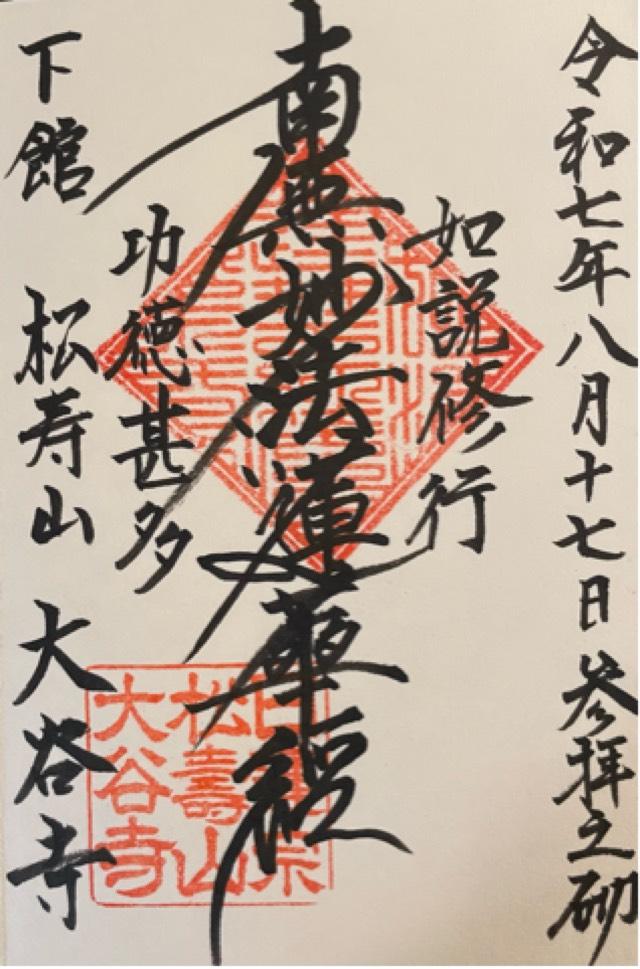 令和七年八月十七日参拝之砌
如説修行
南無妙法蓮華経
功徳甚多
下館 松寿山 大谷寺
日蓮宗
松壽山
大谷寺